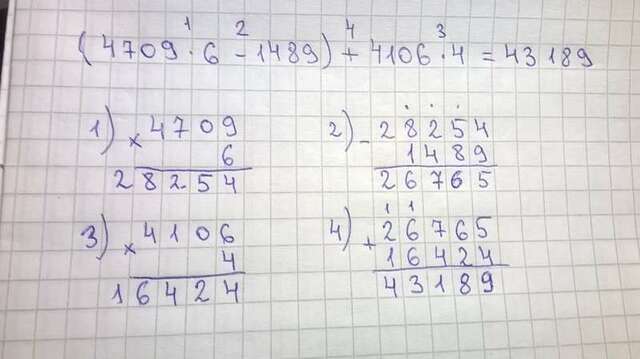 1 2 4 3
(4709 · 6 - 1489) + 4106 · 4 = 43189
1) × 4709
6
28254
2) - 28254
1489
26765
3) × 4106
4
16424
4) 1 1
+ 26765
16424
43189